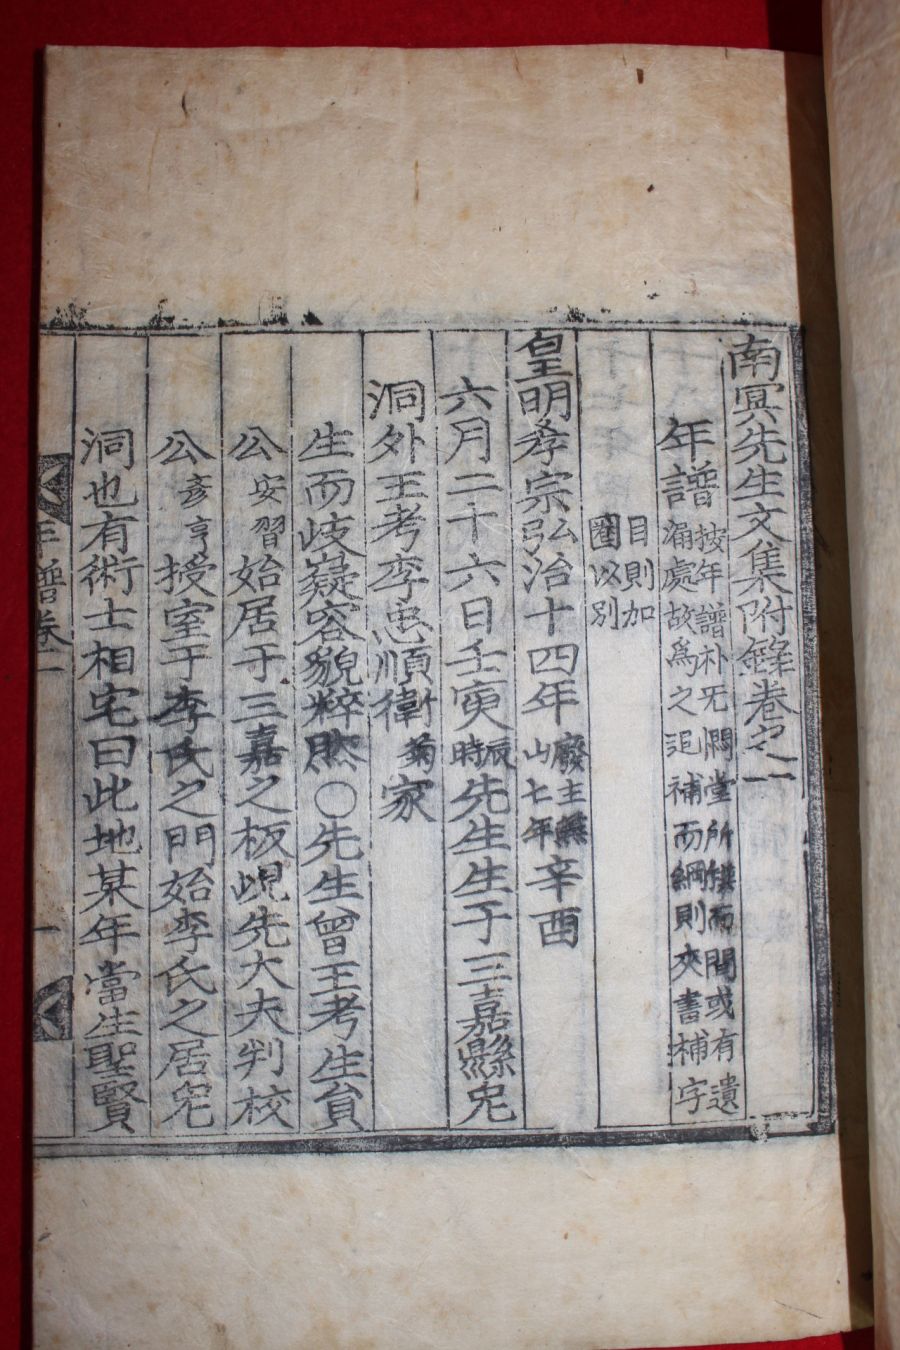 南冥先生文集附錄卷之一
年譜 按年譜朴无悶堂所撰而間或有遺
漏處故爲之追補而綱則夾書補字
目則加
圈以別
皇明孝宗弘治十四年 廢主燕
山七年 辛酉
六月二十六日壬寅 辰
時 先生生于三嘉縣兎
洞外王考李忠順衛 菊 家
生而岐嶷容貌粹然○先生曾王考生員
公 安習 始居于三嘉之板峴先大夫判校
公 彦亨 授室于李氏之門始李氏之居兎
洞也有術士相宅曰此地某年當生聖賢
年譜卷一
一